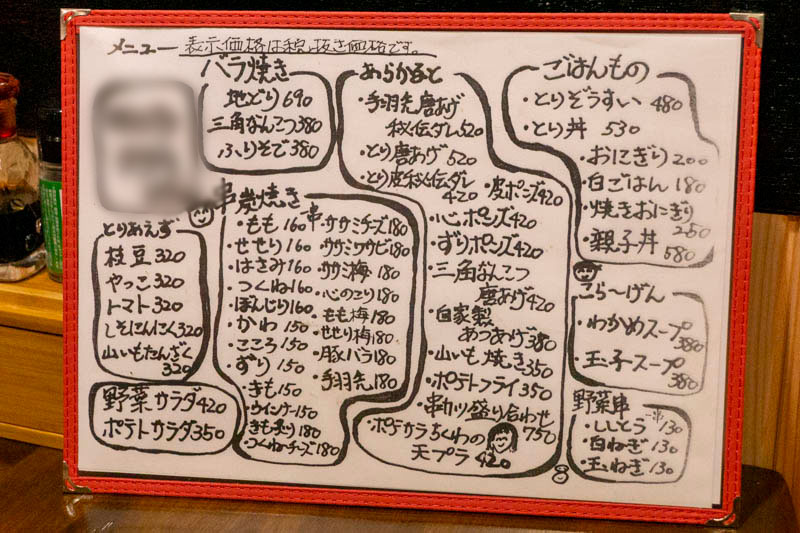 メニュー 表示価格は税抜き価格です。
バラ焼き
地どり 690
三角なんこつ 380
ふりそで 380
とりあえず
枝豆 320
やっこ 320
トマト 320
しそにんにく 320
山いもたんざく
320
野菜サラダ 420
ポテトサラダ 350
串炭焼き串
・もも 160
・せせり 160
・はさみ 160
・つくね 160
・ぼんじり 160
・かわ 150
・こころ 150
・ずり 150
・きも 150
・ウインナー 150
・きも炙り 180
・つくねチーズ 180
・ササミチーズ 180
・ササミワサビ 180
・ササミ梅 180
・心のこり 180
・もも梅 180
・せせり梅 180
・豚バラ 180
・手羽先 180
あらかると
・手羽先唐あげ
秘伝ダレ 520
・とり唐あげ 520
・とり皮秘伝ダレ
420
・皮ポンズ 420
・心ポンズ 420
・ずりポンズ 420
・三角なんこつ
唐あげ 420
・自家製
あつあげ 380
・山いも焼き 350
・ポテトフライ 350
・串カツ盛り合わせ
750
・ポテサラちくわの
天プラ 420
ごはんもの
・とりぞうすい 480
・とり丼 530
・おにぎり 200
・白ごはん 180
・焼きおにぎり
250
・親子丼
580
こら〜げん
・わかめスープ
380
・玉子スープ
380
野菜串 一串
・ししとう 130
・白ねぎ 130
・玉ねぎ 130